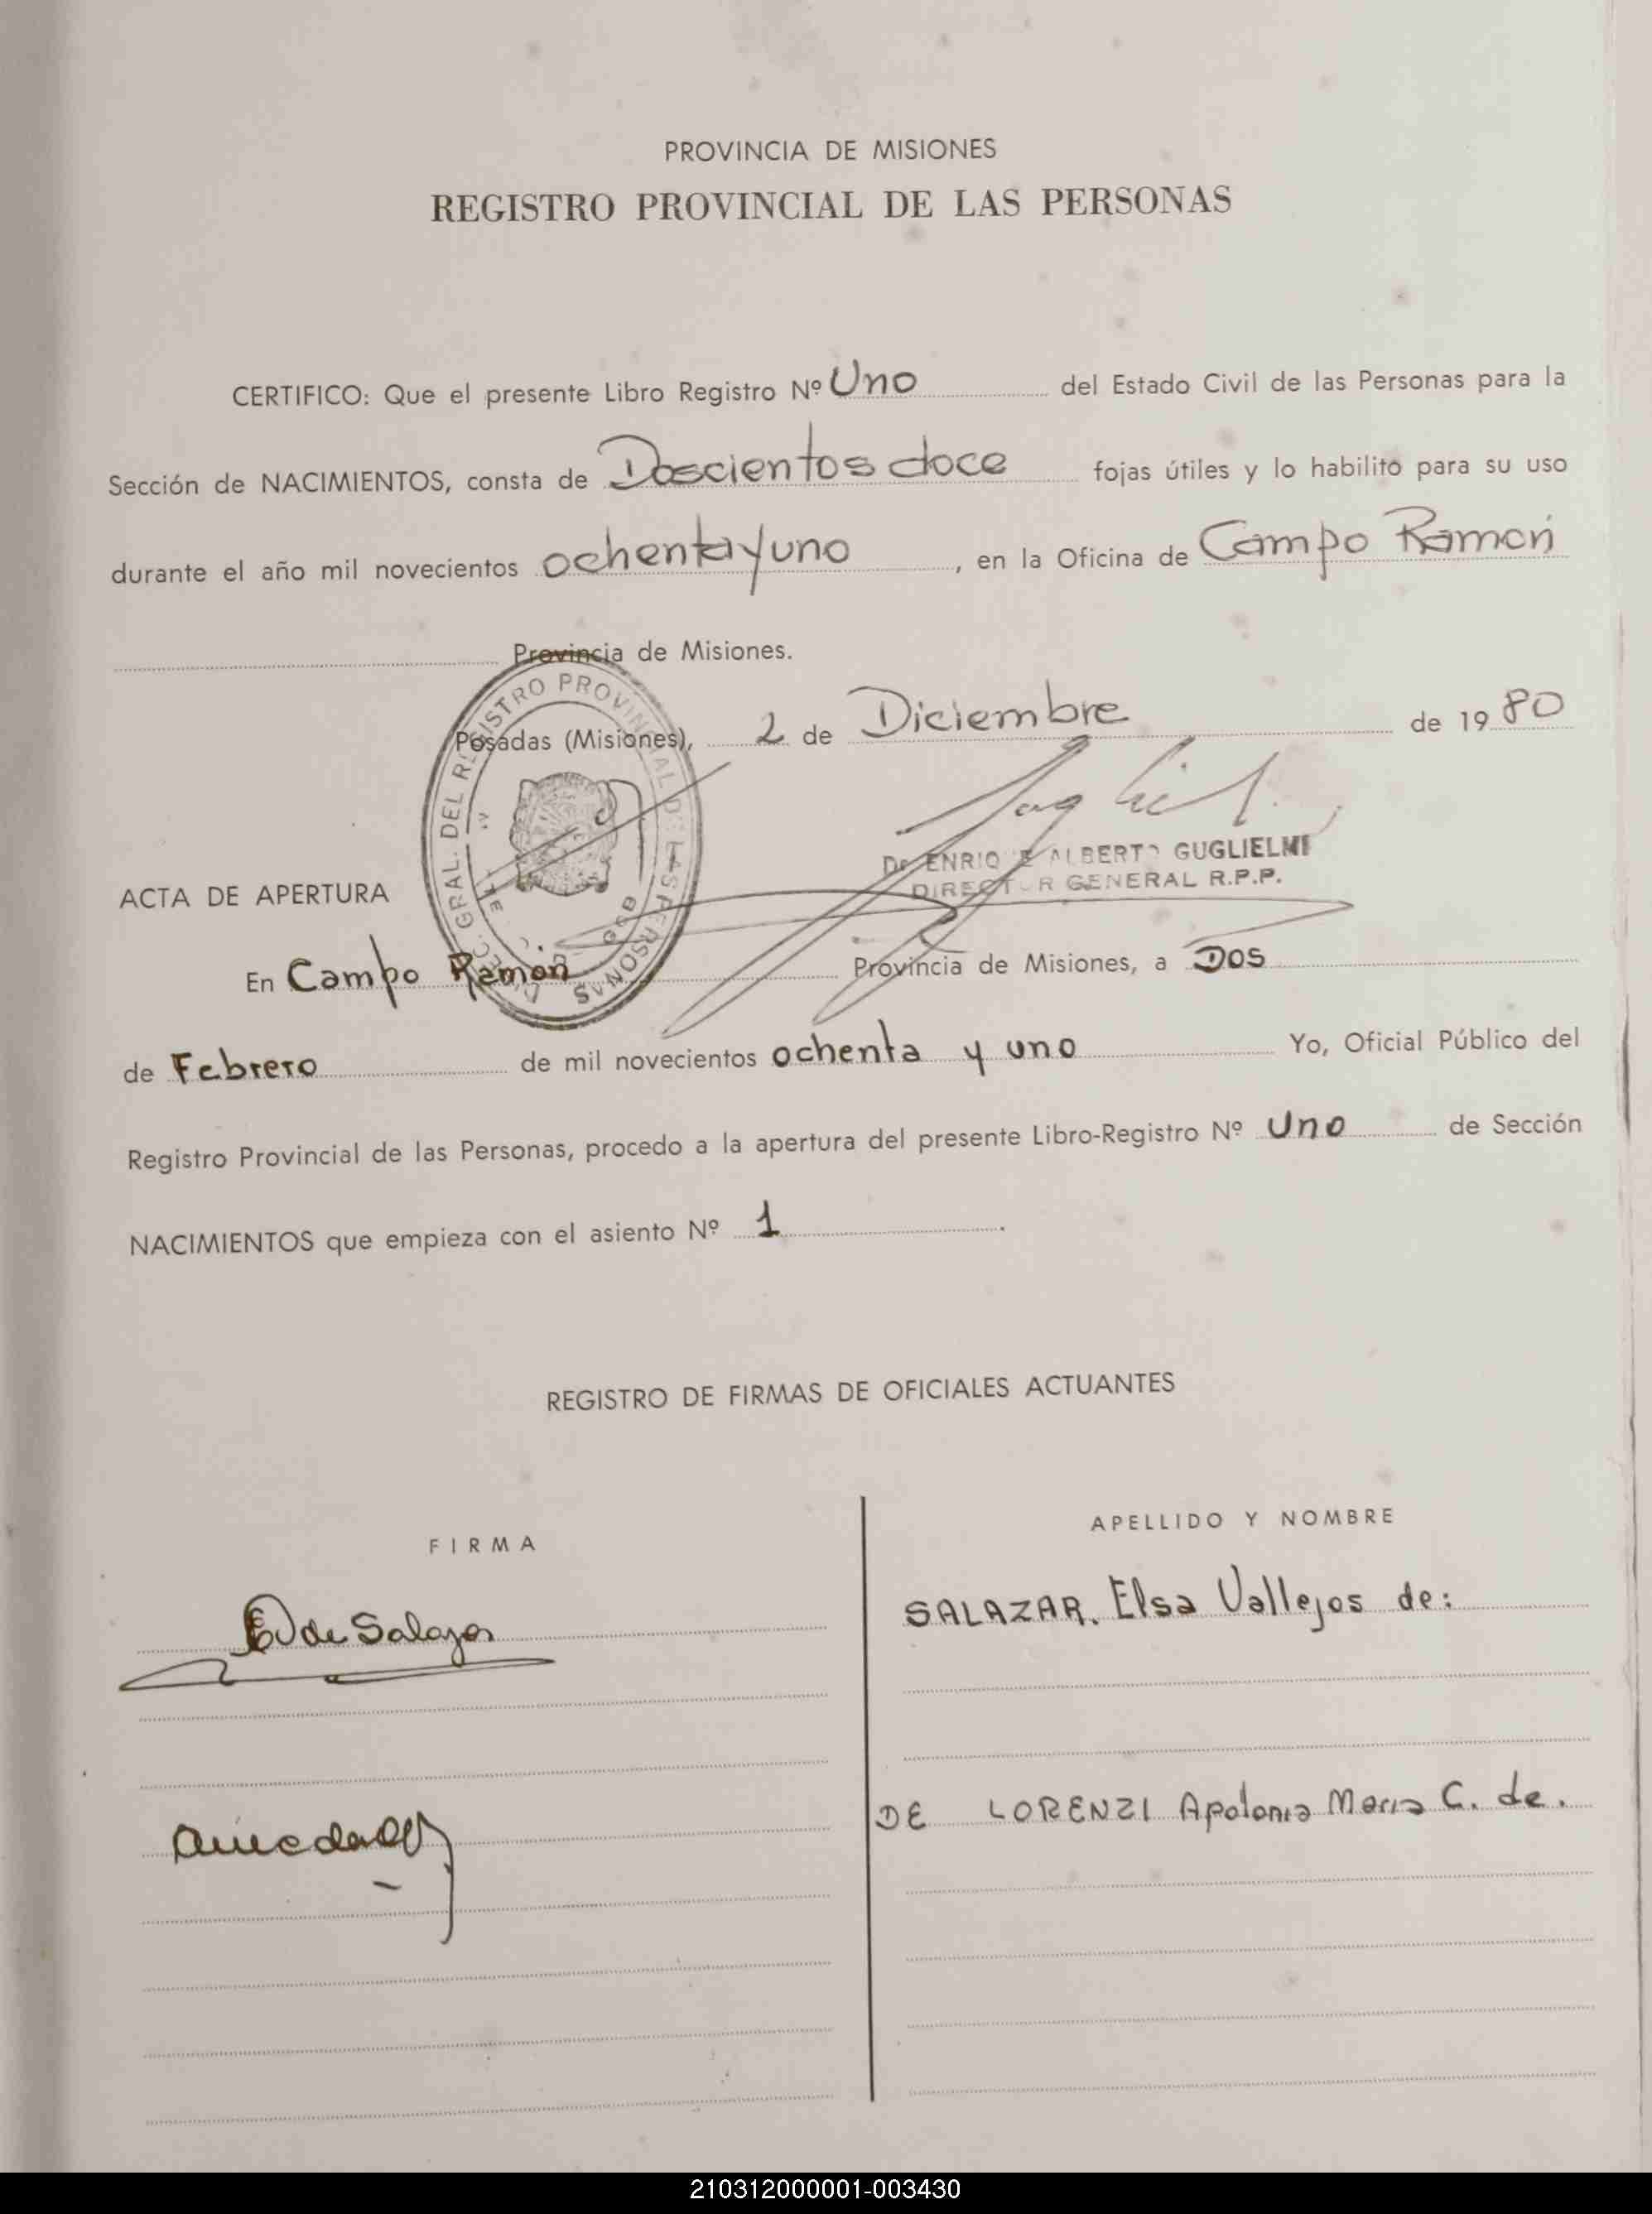 PROVINCIA DE MISIONES
REGISTRO PROVINCIAL DE LAS PERSONAS
CERTIFICO: Que el presente Libro Registro Nº Uno del Estado Civil de las Personas para la
Sección de NACIMIENTOS, consta de Doscientos doce fojas útiles y lo habilito para su uso
durante el año mil novecientos ochenta y uno, en la Oficina de Campo Ramón
Provincia de Misiones.
Posadas (Misiones), 2 de Diciembre de 1980
DR. ENRIQUE ALBERTO GUGLIELMI
DIRECTOR GENERAL R.P.P.
ACTA DE APERTURA
En Campo Ramon Provincia de Misiones, a Dos
de Febrero de mil novecientos ochenta y uno Yo, Oficial Público del
Registro Provincial de las Personas, procedo a la apertura del presente Libro-Registro Nº Uno de Sección
NACIMIENTOS que empieza con el asiento Nº 1.
REGISTRO DE FIRMAS DE OFICIALES ACTUANTES
FIRMA
APELLIDO Y NOMBRE
E V de Salazar
SALAZAR, Elsa Vallejos de:
DE LORENZI Apolonia Maria C. de.
210312000001-003430